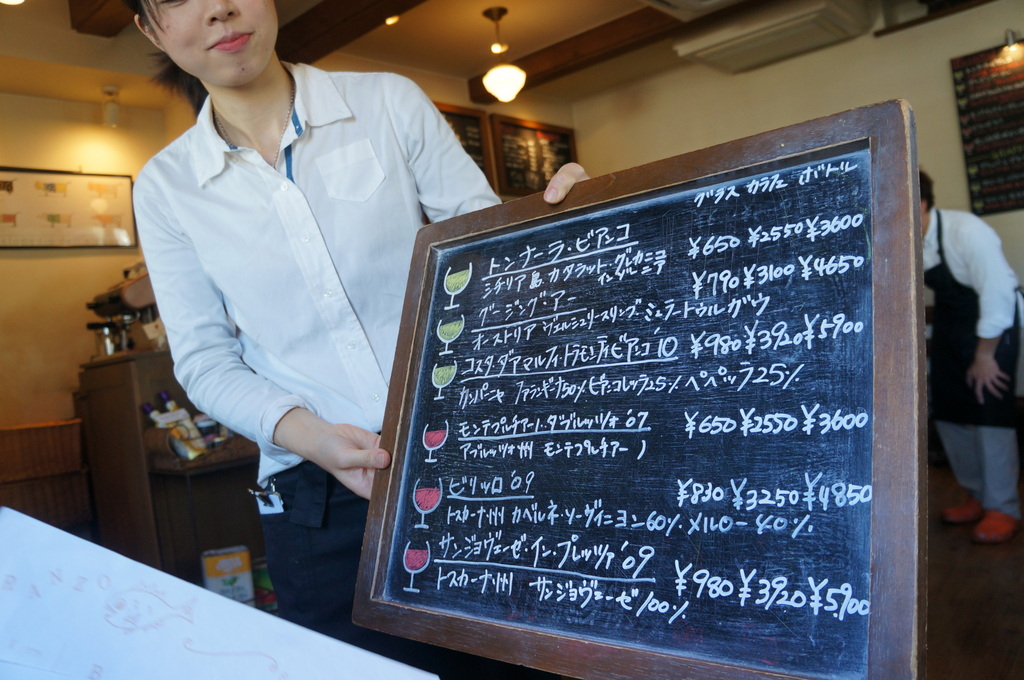 グラス カラフェ ボトル
トンナーラ・ビアンコ ¥650 ¥2550 ¥3600
シチリア島.カタラット.グルカニコ
インダルニア
グージング・アー ¥790 ¥3100 ¥4650
オーストリア ヴェルシュリースリング.ミュラートゥルガウ
コスタ.ダマルフィ.トラモンティビアンコ'10 ¥980 ¥3920 ¥5,900
カンパーニャ ファランギーナ50% ビアンコレッラ25% ペペッラ25%
モンテプルチアーノ.ダブルッツォ'07 ¥650 ¥2550 ¥3600
アブルッツォ州 モンテプルチアーノ
ビリッロ'09 ¥830 ¥3250 ¥4850
トスカーナ州 カベルネ・ソーヴィニヨン60% メルロー40%
サンジョヴェーゼ・イン・プレッツァ'09
トスカーナ州 サンジョヴェーゼ100% ¥980 ¥3920 ¥5,900